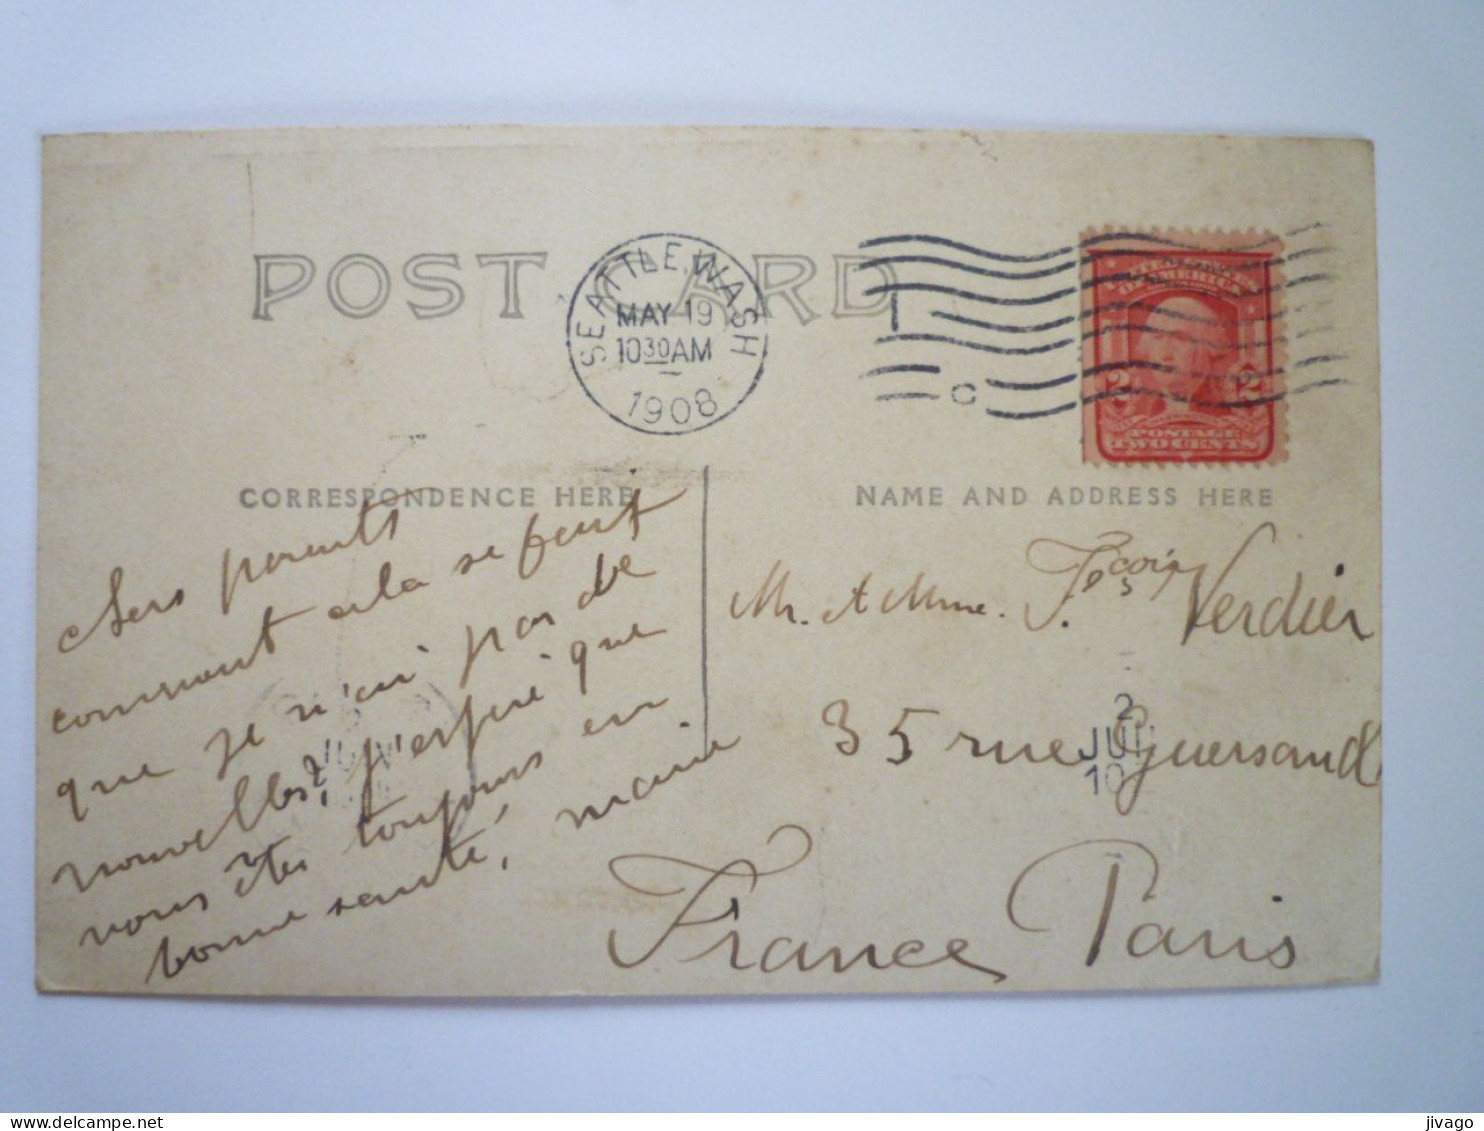 POST CARD
SEATTLE, WASH
MAY 19
10 30 AM
1908
C
UNITED STATES OF AMERICA
2 2
POSTAGE
TWO CENTS
CORRESPONDENCE HERE
NAME AND ADDRESS HERE
chers parents
comment cela se feut
que je n'ai pas de
nouvelles, j'espère que
vous êtes toujours en
bonne santé, marie.
Mr. et Mme. Fçois Verdier
35 rue Guersand
France Paris
2
JUI
10
jivago